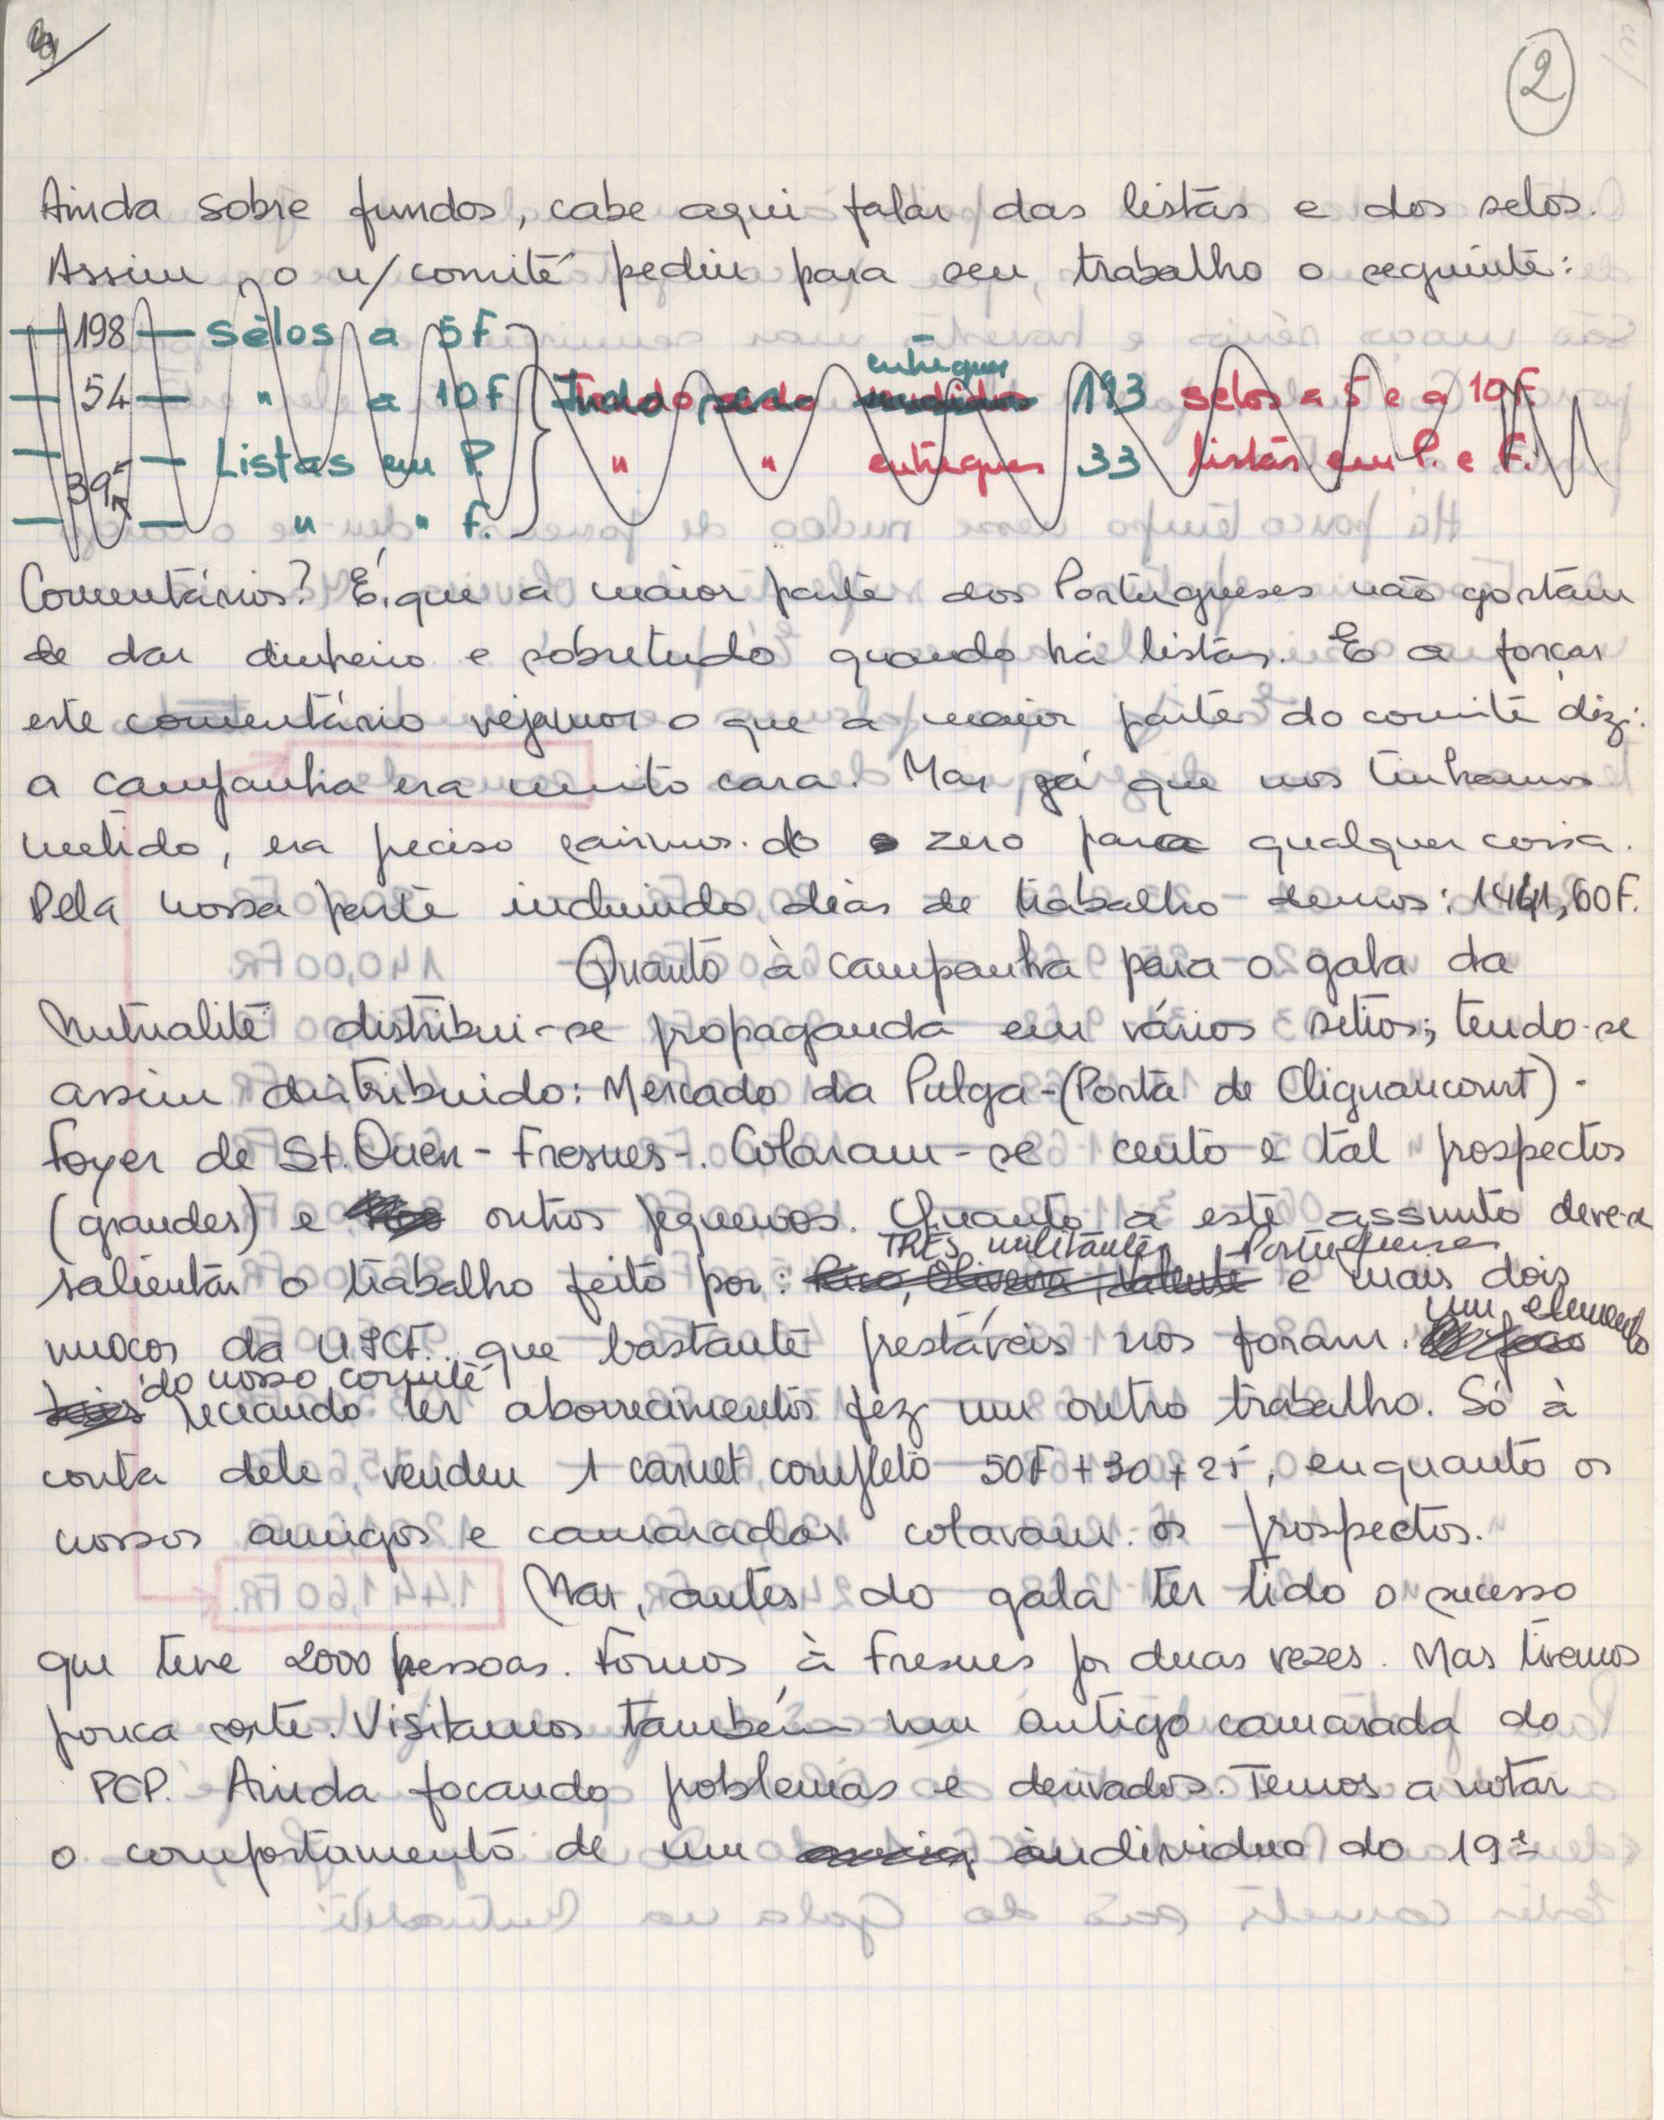 2
Ainda sobre fundos, cabe aqui falar das listas e dos selos.
Assim, o n/comité pediu para seu trabalho o seguinte:
— 198 — Sêlos a 5F
— 54 — " a 10F Tendo sido entregues 193 selos a 5 e a 10F.
— 39 — Listas em P. " " entregues 33 listas em P. e F.
— — " " F.
Comentários? É que a maior parte dos Portugueses não gostam
de dar dinheiro e sobretudo quando há listas. E a forçar
este comentário vejamos o que a maior parte do comité diz:
a campanha era muito cara. Mas já que nos tinhamos
metido, era preciso sairmos do zero para qualquer coisa.
Pela nossa parte incluindo dias de trabalho demos: 1441,60F.
Quanto à campanha para o gala da
Mutualité distribui-se propaganda em vários sitios; tendo-se
assim distribuido: Mercado da Pulga-(Porta de Clignancourt)-
Foyer de St. Ouen - Fresnes-. Colaram-se cento e tal prospectos
(grandes) e outros pequenos. Quanto a este assunto deve-se
TRÊS militantes Portugueses
salientar o trabalho feito por: Oliveira, Valente e mais dois
moços da UJCF. que bastante prestáveis nos foram. um elemento
do nosso comité
receando ter aborrecimentos fez um outro trabalho. Só à
conta dele, vendeu 1 carnet completo 50F + 30 + 25, enquanto os
nossos amigos e camaradas colavam os prospectos.
Mas, antes do gala ter tido o sucesso
que teve 2000 pessoas. Fomos à Fresnes por duas vezes. Mas tivemos
pouca sorte. Visitamos também um antigo camarada do
PCP. Ainda focando problemas e derivados. Temos a notar
o comportamento de um individuo do 19º